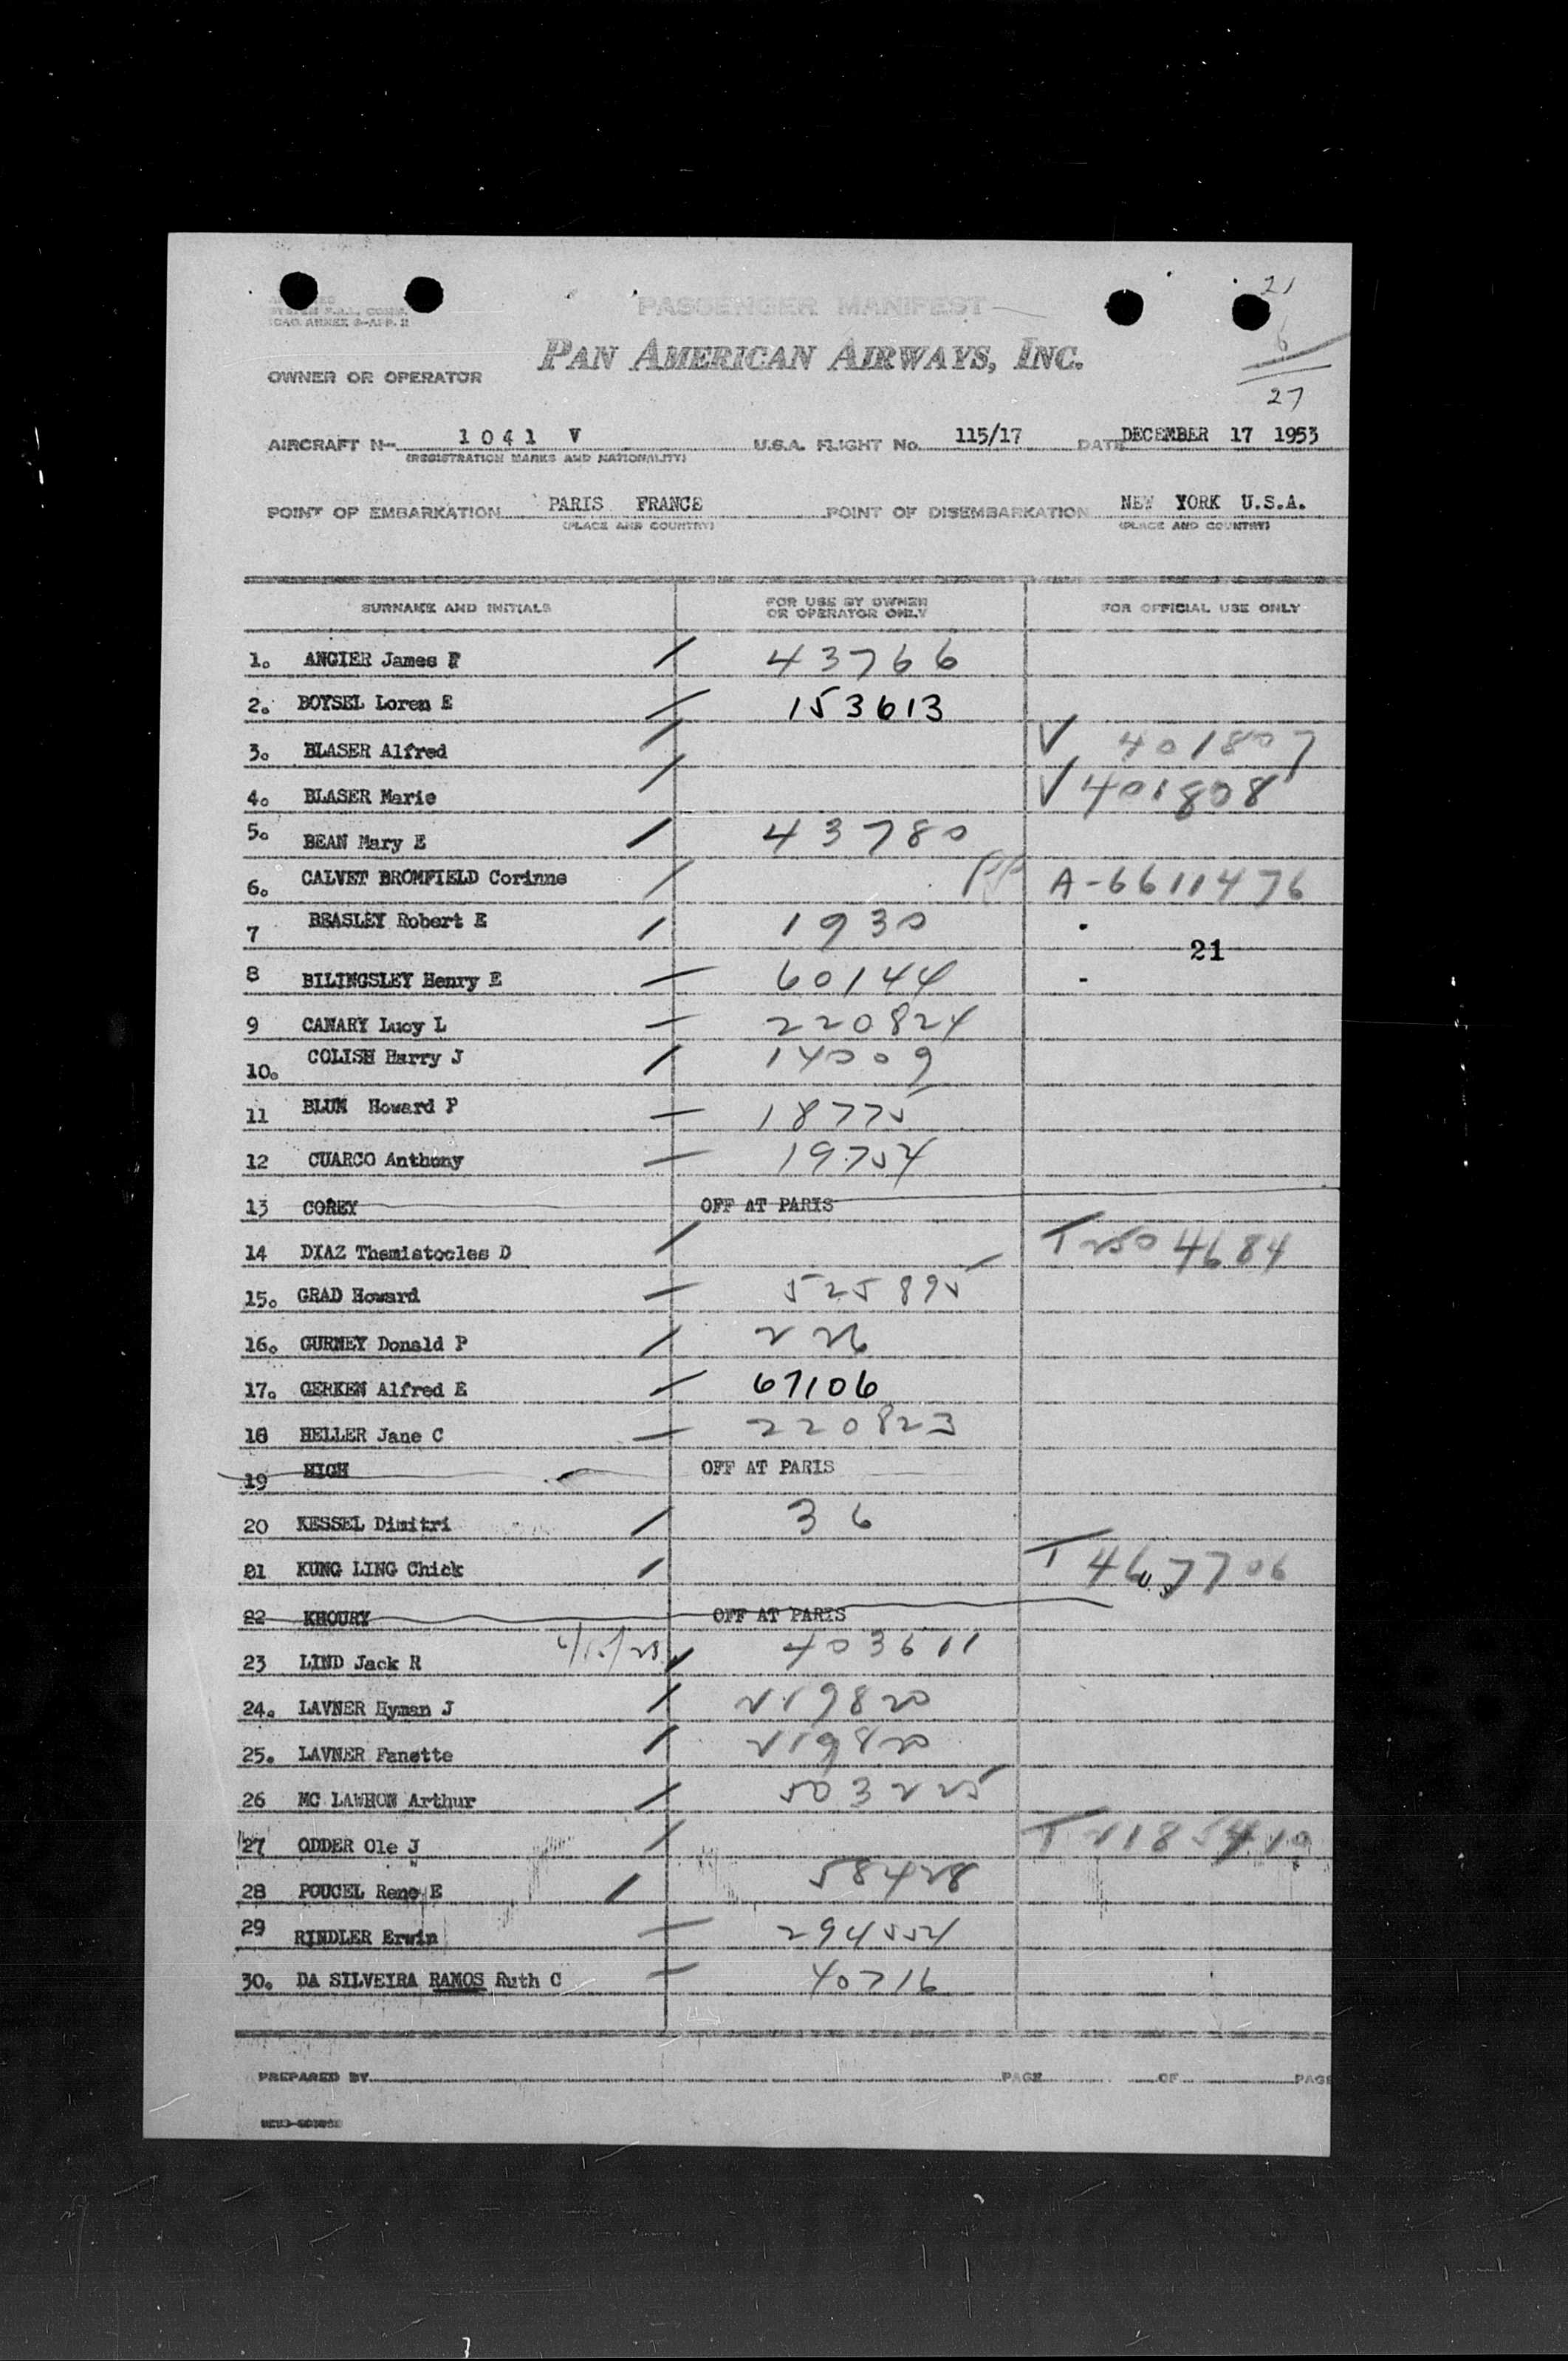 21
PASSENGER MANIFEST
ICAO ANNEX 9-APP. 2
6
PAN AMERICAN AIRWAYS, INC.
OWNER OR OPERATOR
27
AIRCRAFT N- 1041 V U.S.A. FLIGHT No. 115/17 DATE DECEMBER 17 1953
(REGISTRATION MARKS AND NATIONALITY)
POINT OF EMBARKATION PARIS FRANCE POINT OF DISEMBARKATION NEW YORK U.S.A.
(PLACE AND COUNTRY) (PLACE AND COUNTRY)
SURNAME AND INITIALS FOR USE BY OWNER OR OPERATOR ONLY FOR OFFICIAL USE ONLY
1. ANGIER James F 43766
2. BOYSEL Loren E 153613
3. BLASER Alfred V 401807
4. BLASER Marie V 401808
5. BEAN Mary E 43780
6. CALVET BROMFIELD Corinne PP A-6611476
7 BEASLEY Robert E 1930
21
8 BILINGSLEY Henry E 60144
9 CANARY Lucy L 220824
10. COLISH Harry J 14009
11 BLUM Howard P 18775
12 CUARCO Anthony 19754
13 COREY OFF AT PARIS
14 DIAZ Themistocles D T 2504684
15. GRAD Howard 525895
16. GURNEY Donald P 226
17. GERKEN Alfred E 67106
18 HELLER Jane C 220823
19 HIGH OFF AT PARIS
20 KESSEL Dimitri 36
21 KUNG LING Chick T
22 KHOURY OFF AT PARIS
23 LIND Jack R 403611
24. LAVNER Hyman J 219820
25. LAVNER Fanette 219820
26 MC LAWHON Arthur 503225
27 ODDER Ole J T 2185419
28 POUCEL Rene E 58428
29 RINDLER Erwin 294554
30. DA SILVEIRA RAMOS Ruth C 40716
PREPARED BY PAGE OF PAGE